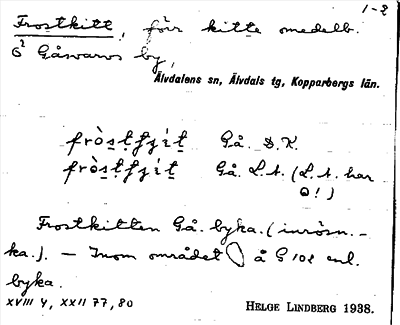 1-2
Frostkitt, förr kitte omedelb.
ö Gåsvarvs by,
Älvdalens sn, Älvdals tg, Kopparbergs län.
fròs̱ṯfʒíṯ Gå. D.K.
fròs̱ṯfʒíṯ Gå. L.A. (L.A. har
o!)
Frostkitten Gå. byka. (inrösn.-
ka.). — Inom området å S 102 enl.
byka.
XVIII 4, XXII 77, 80
HELGE LINDBERG 1938.